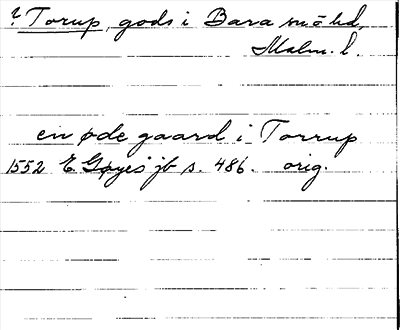 ? Torup, gods i Bara sn ö hd,
Malm. l.
en øde gaard i Torrup
1552 E. Gøyes jb s. 486. orig.